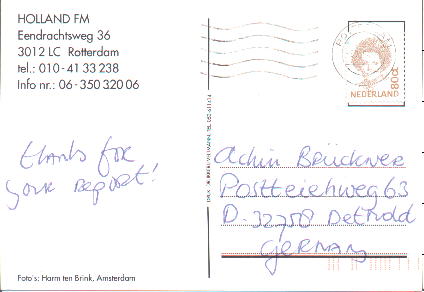 HOLLAND FM
Eendrachtsweg 36
3012 LC Rotterdam
tel.: 010-41 33 238
Info nr.: 06-350 320 06
NEDERLAND
80ct
thanks for
your report!
Achim Brückner
D-32758 Detmold
GERMANY
Foto's: Harm ten Brink, Amsterdam